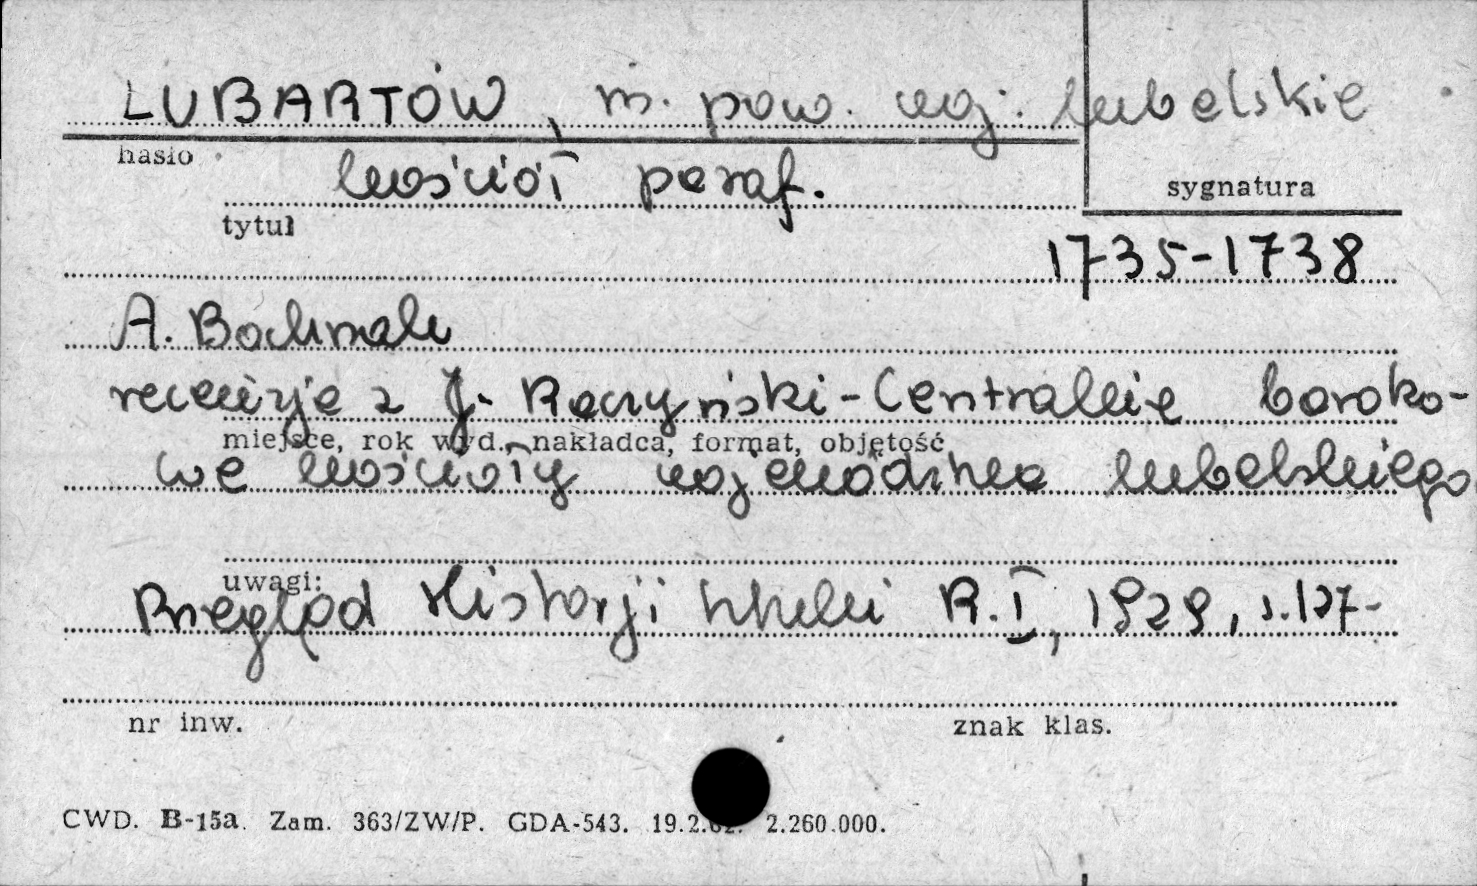 LUBARTÓW, m. pow. woj. lubelskie
hasło
kościół paraf.
sygnatura
tytuł
1735-1738
A. Bochnak
recenzja z J. Raczyński - Centralnie baroko-
miejsce, rok wyd., nakładca, format, objętość
we kościoły województwa lubelskiego
uwagi:
Przegląd Historji Sztuki R. I, 1929, s. 127-
nr inw.
znak klas.
CWD. B-15a. Zam. 363/ZW/P. GDA-543. 19.2.62. 2.260.000.